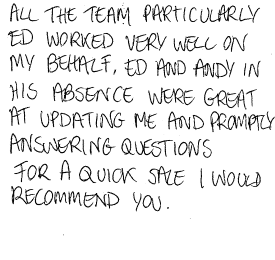 ALL THE TEAM PARTICULARLY
ED WORKED VERY WELL ON
MY BEHALF, ED AND ANDY IN
HIS ABSENCE WERE GREAT
AT UPDATING ME AND PROMPTLY
ANSWERING QUESTIONS
FOR A QUICK SALE I WOULD
RECOMMEND YOU.